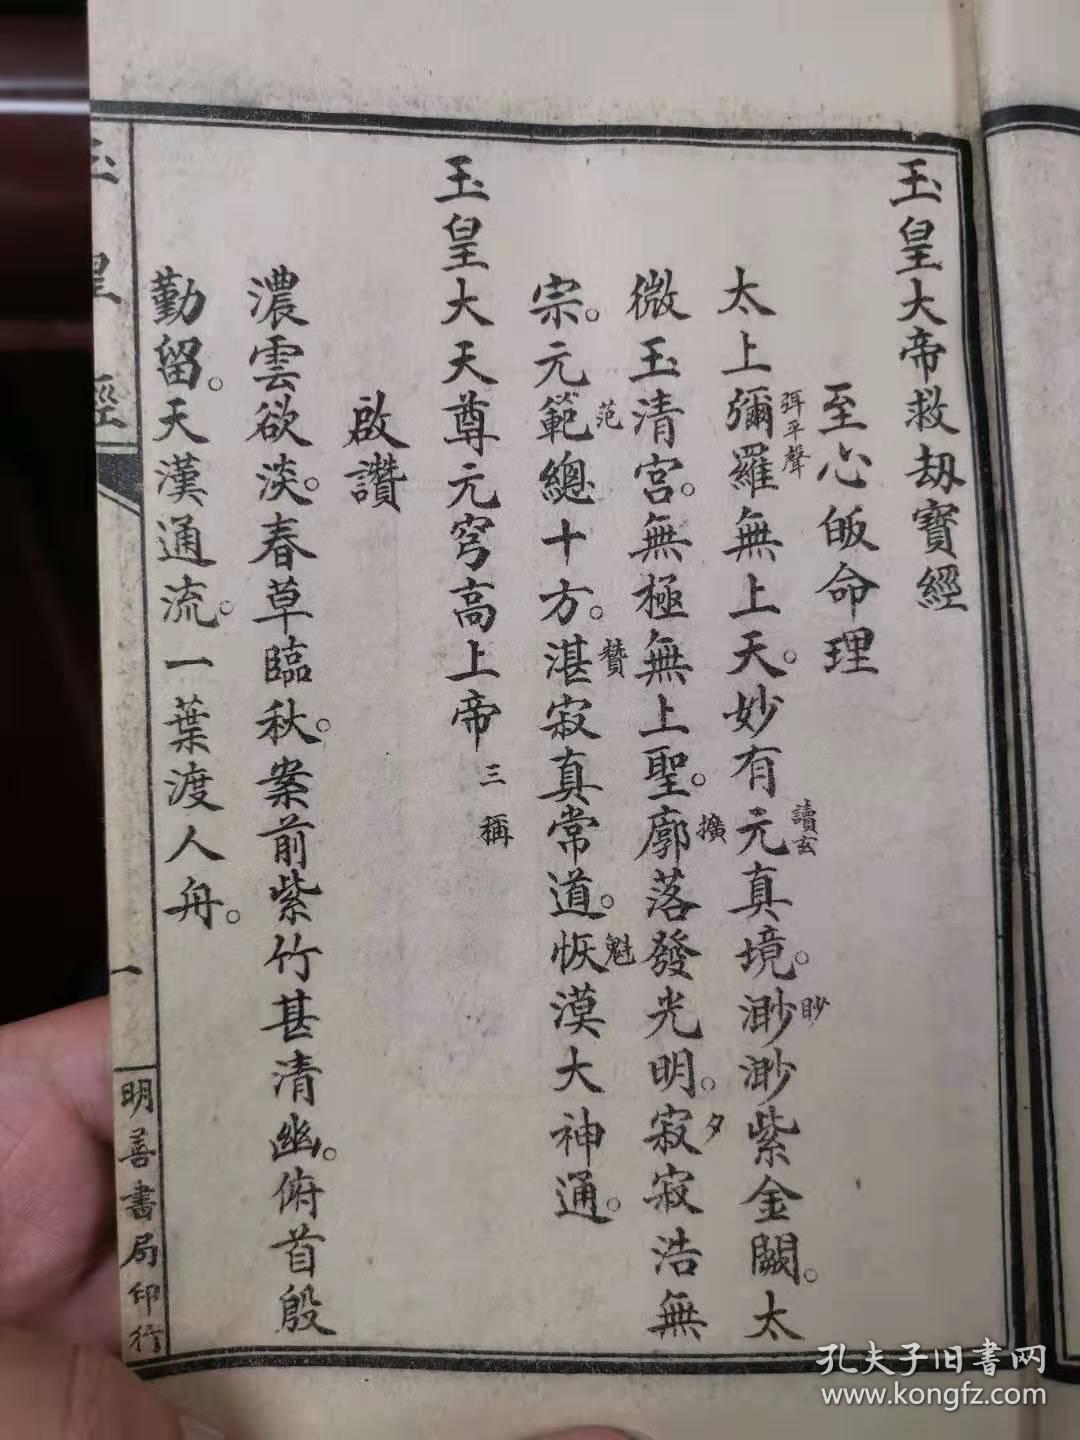 玉皇大帝救劫寶經
至心皈命理
太上彌羅無上天。妙有元真境。渺渺紫金闕。太
弭平聲
讀玄
眇
微玉清宮。無極無上聖。廓落發光明。寂寂浩無
擴
夕
宗。元範總十方。湛寂真常道。恢漠大神通。
范
贊
魁
玉皇大天尊元穹高上帝
三稱
啟讚
濃雲欲淡。春草臨秋。案前紫竹甚清幽。俯首殷
勤留。天漢通流。一葉渡人舟。
玉皇經
一
明善書局印行
孔夫子旧書网
www.kongfz.com